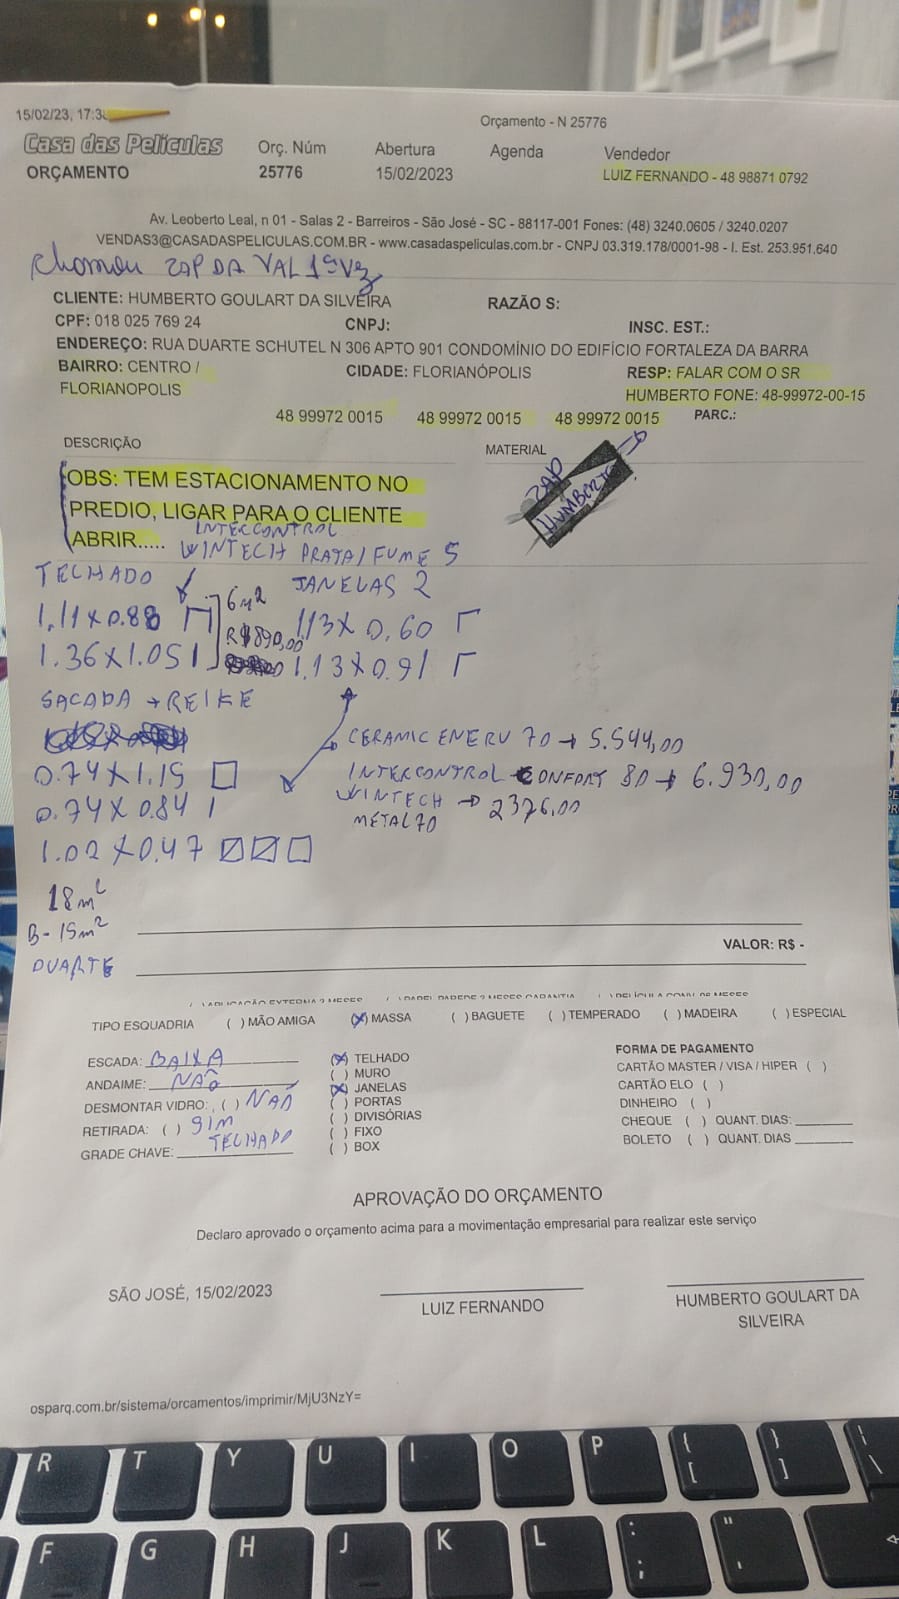 15/02/23, 17:3
Orçamento - N 25776
Casa das Películas
ORÇAMENTO
Orç. Núm
25776
Abertura
15/02/2023
Agenda
Vendedor
LUIZ FERNANDO - 48 98871 0792
Av. Leoberto Leal, n 01 - Salas 2 - Barreiros - São José - SC - 88117-001 Fones: (48) 3240.0605 / 3240.0207
VENDAS3@CASADASPELICULAS.COM.BR - www.casadaspeliculas.com.br - CNPJ 03.319.178/0001-98 - I. Est. 253.951.640
ZAP DA VAL 1º VZ
CLIENTE: HUMBERTO GOULART DA SILVEIRA
RAZÃO S:
CPF: 018 025 769 24
CNPJ:
INSC. EST.:
ENDEREÇO: RUA DUARTE SCHUTEL N 306 APTO 901 CONDOMÍNIO DO EDIFÍCIO FORTALEZA DA BARRA
BAIRRO: CENTRO / FLORIANOPOLIS
CIDADE: FLORIANÓPOLIS
RESP: FALAR COM O SR
HUMBERTO FONE: 48-99972-00-15
48 99972 0015 48 99972 0015 48 99972 0015 PARC.:
DESCRIÇÃO
MATERIAL
OBS: TEM ESTACIONAMENTO NO
PREDIO, LIGAR PARA O CLIENTE
ABRIR.....
ZAP
HUMBERTO
INTERCONTROL
WINTECH PRATA/FUME 5
TECHADO
JANELAS 2
1.11 x 0.88
6m²
113 x 0,60
R$ 890,00
1.36 x 1.05 I
1.13 x 0.91
SACADA → REIKE
CERAMIC ENERV 70 → 5.544,00
0.74 x 1.15
INTERCONTROL CONFORT 80 → 6.930,00
0.74 x 0.84 I
WINTECH → 2376,00
METAL 70
1.02 x 0.47
18m²
B- 15m²
VALOR: R$ -
DUARTE
TIPO ESQUADRIA ( ) MÃO AMIGA (X) MASSA ( ) BAGUETE ( ) TEMPERADO ( ) MADEIRA ( ) ESPECIAL
ESCADA: BAIXA
ANDAIME: NAÕ
DESMONTAR VIDRO: ( ) NAÕ
RETIRADA: ( ) SIM
TECHADO
GRADE CHAVE:
(X) TELHADO
( ) MURO
(X) JANELAS
( ) PORTAS
( ) DIVISÓRIAS
( ) FIXO
( ) BOX
FORMA DE PAGAMENTO
CARTÃO MASTER / VISA / HIPER ( )
CARTÃO ELO ( )
DINHEIRO ( )
CHEQUE ( ) QUANT. DIAS:
BOLETO ( ) QUANT. DIAS
APROVAÇÃO DO ORÇAMENTO
Declaro aprovado o orçamento acima para a movimentação empresarial para realizar este serviço
SÃO JOSÉ, 15/02/2023
LUIZ FERNANDO
HUMBERTO GOULART DA
SILVEIRA
osparq.com.br/sistema/orcamentos/imprimir/MjU3NzY=
R T Y U I O P { [ } ] | \
F G H J K L : ; " '